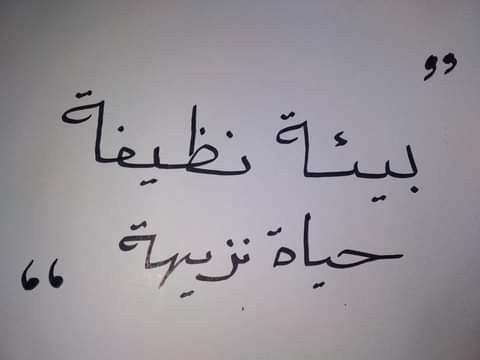 ”بيئة نظيفة
حياة نزيهة“